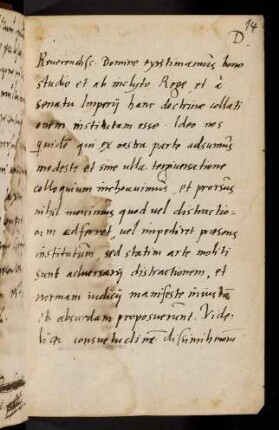 14
D
Reverendiss. Domine existimamus bono
studio et ab inclyto Rege et à
senatu Imperij hanc doctrinae collati
onem institutam esse. Ideo nos
quidē qui ex vestra parte adsumus
modeste et sine ulla tergiversatione
colloquium inchoavimus, et prorsus
nihil movimus quod vel distractio-
nem adferret, vel impediret praesens
institutum sed statim arte moliti
sunt adversarij distractionem, et
normam iudicij manifeste iniustā
et absurdam proposuerunt. Vide-
licet consuetudinē